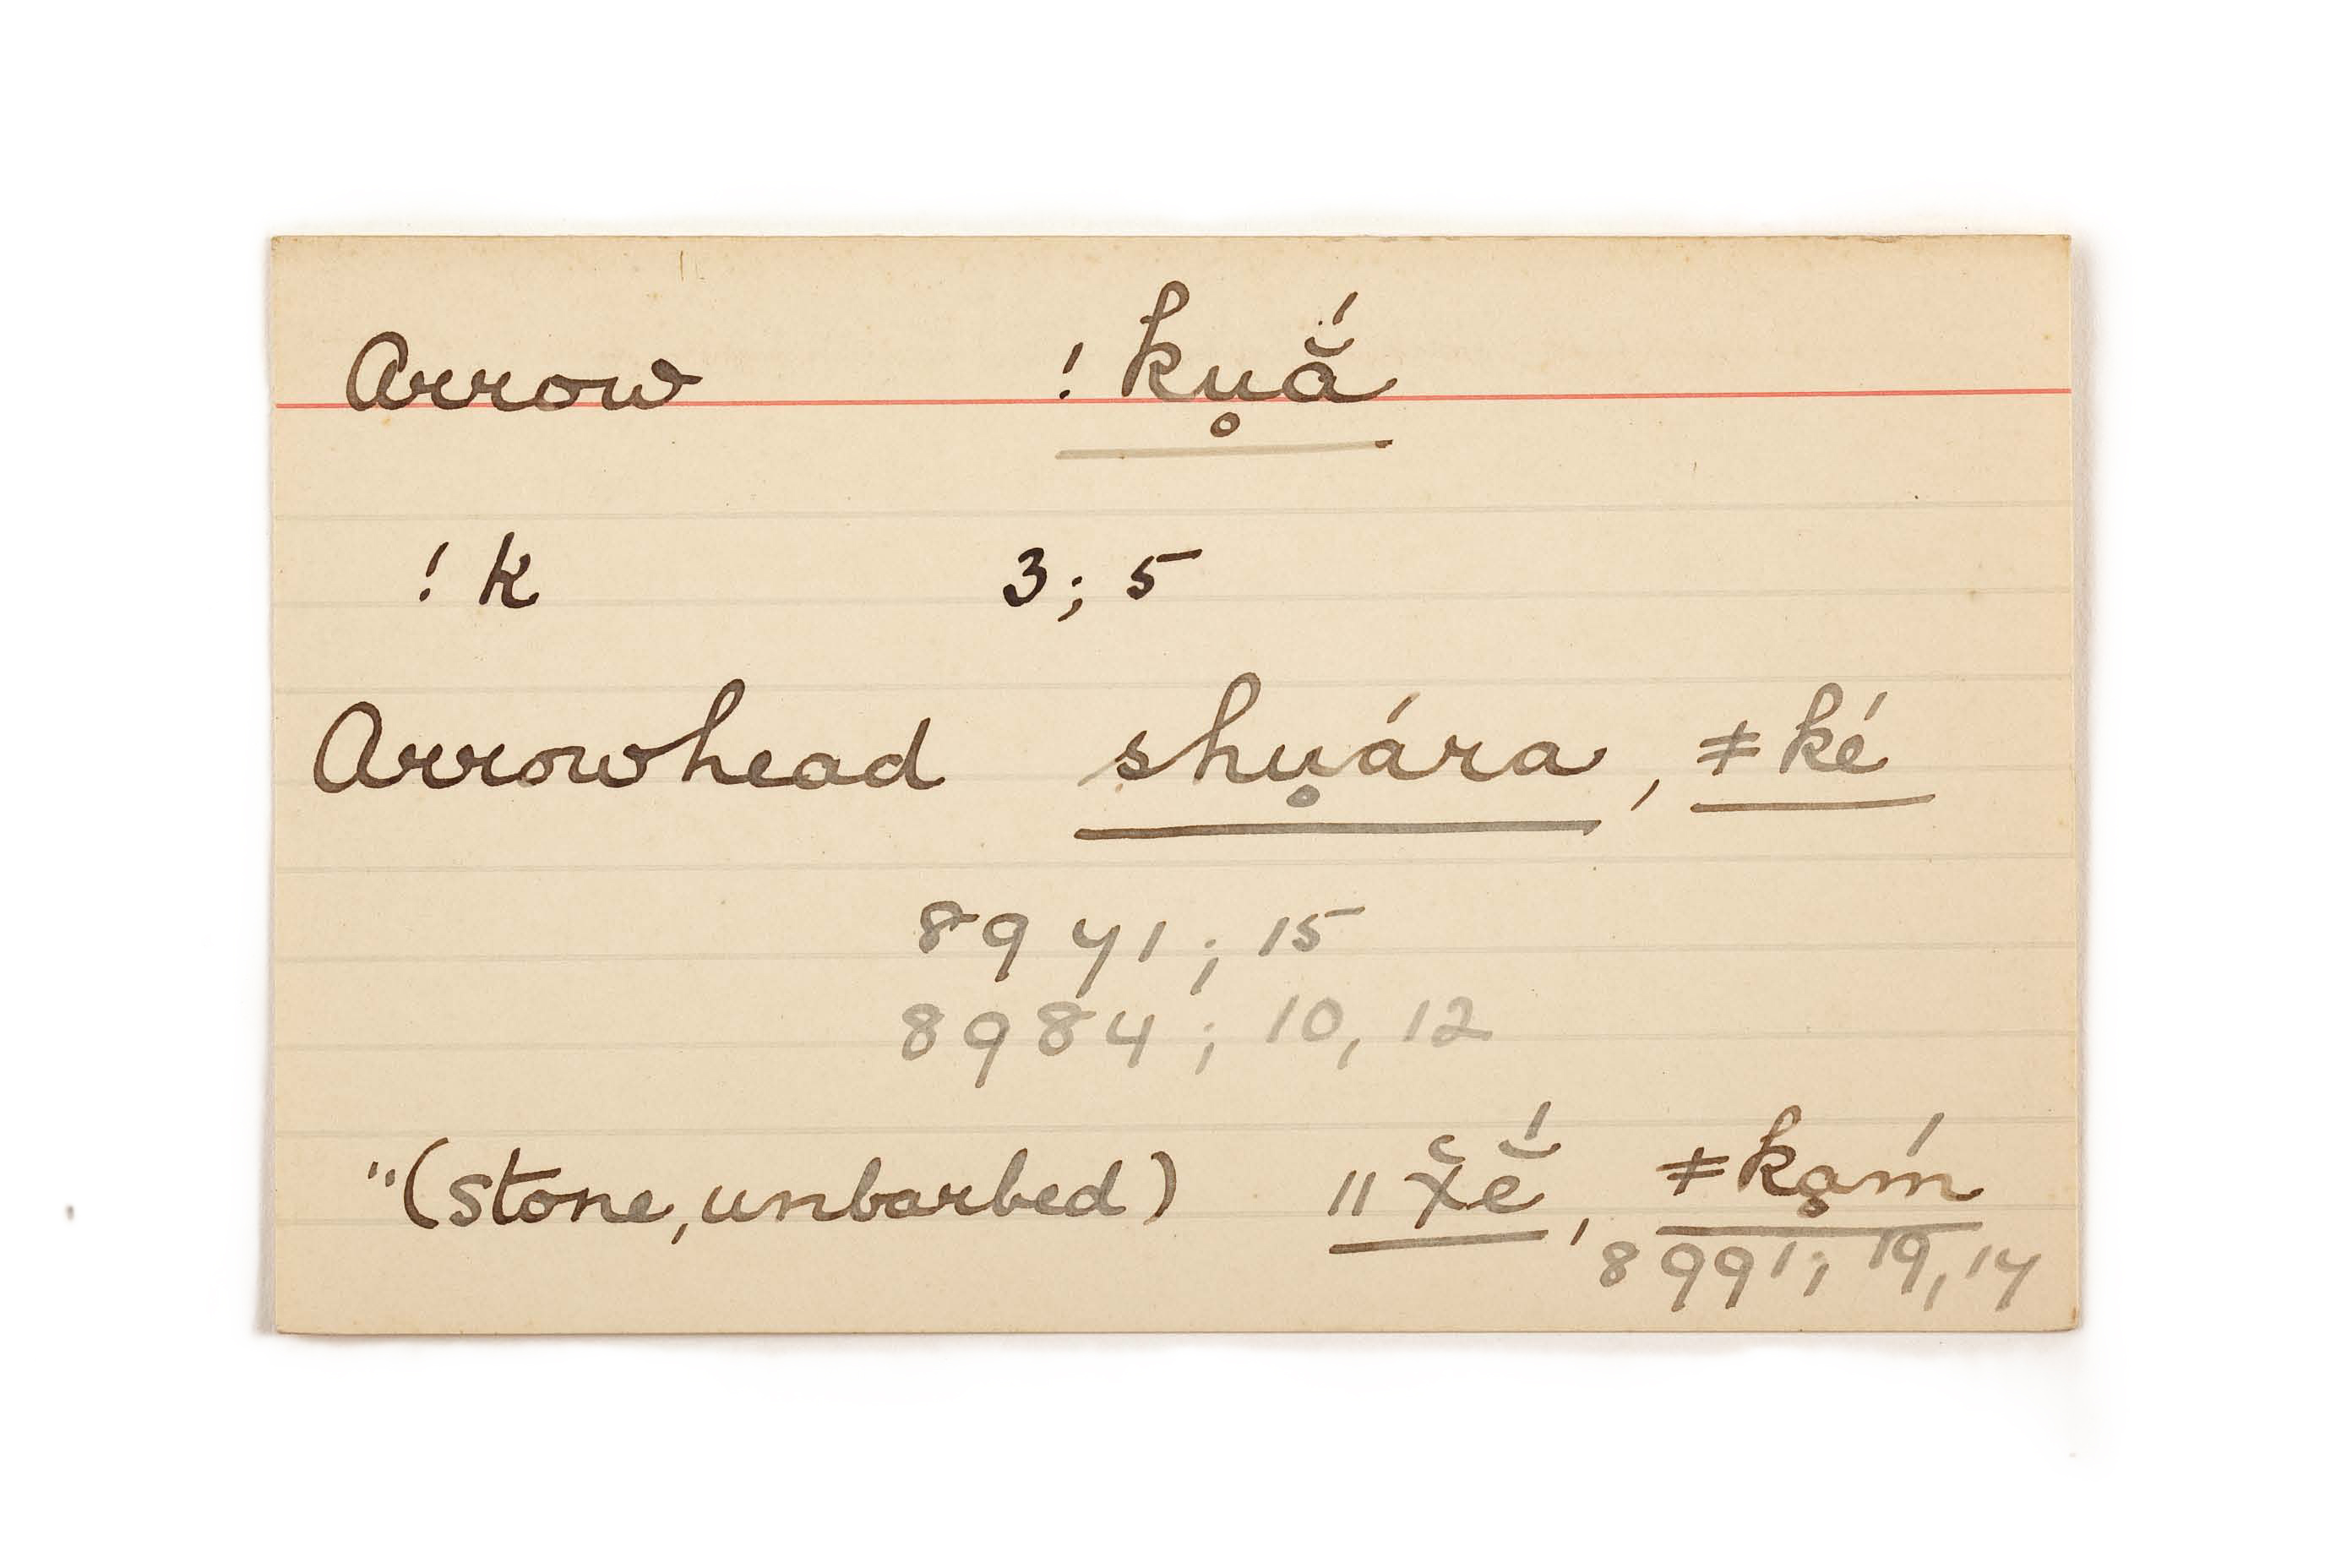 Arrow !ku̥ắ
!k 3; 5
Arrowhead shu̥ára, ǂké
8971; 15
8984; 10, 12
"(stone, unbarbed) ǁχ̆ĕ́, ǂkḁḿ
8991; 19, 17